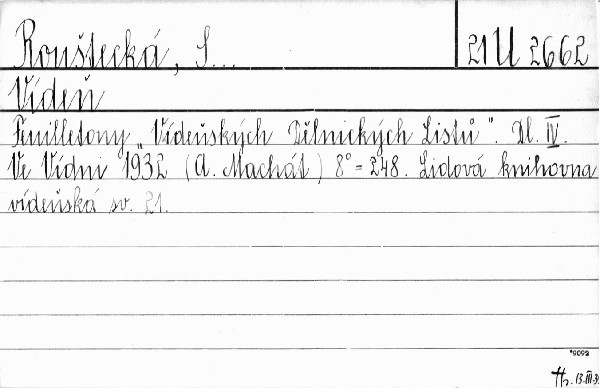 Rouštecká, S... 21 U 2662
Vídeň
Feuilletony „Vídeňských Dělnických Listů". Dl. IV.
Ve Vídni 1932 (A. Machát) 8° = 248. Lidová knihovna
vídeňská sv. 21.